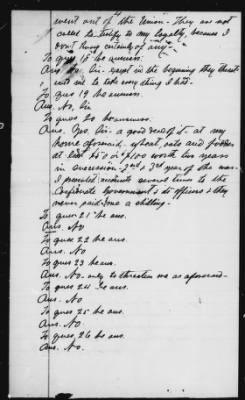 went out of the Union - They are not
called to testify to my loyalty because I
don't know certainly of any -
To ques 18 he answers:
Ans No, Sir - except in the beginning they threat-
ened me to take every thing I had -
To ques 19 he answers.
Ans. No, Sir
To ques 20 he answers.
Ans. Yes, Sir - a good deal of it - at my
home aforesaid - wheat, oats and fodder
at least $50 or $100 worth two years
in succession - 2nd & 3rd year of the war -
I presented accounts several times to the
Confederate Government & its officers & they
never paid me a shilling -
To ques 21 he ans.
Ans. No
To ques 22 he ans.
Ans. No
To ques 23 he ans.
Ans. No only to threaten me as aforesaid -
To ques 24 he ans.
Ans. No
To ques 25 he ans.
Ans. No
To ques. 26 he ans.
Ans. No.